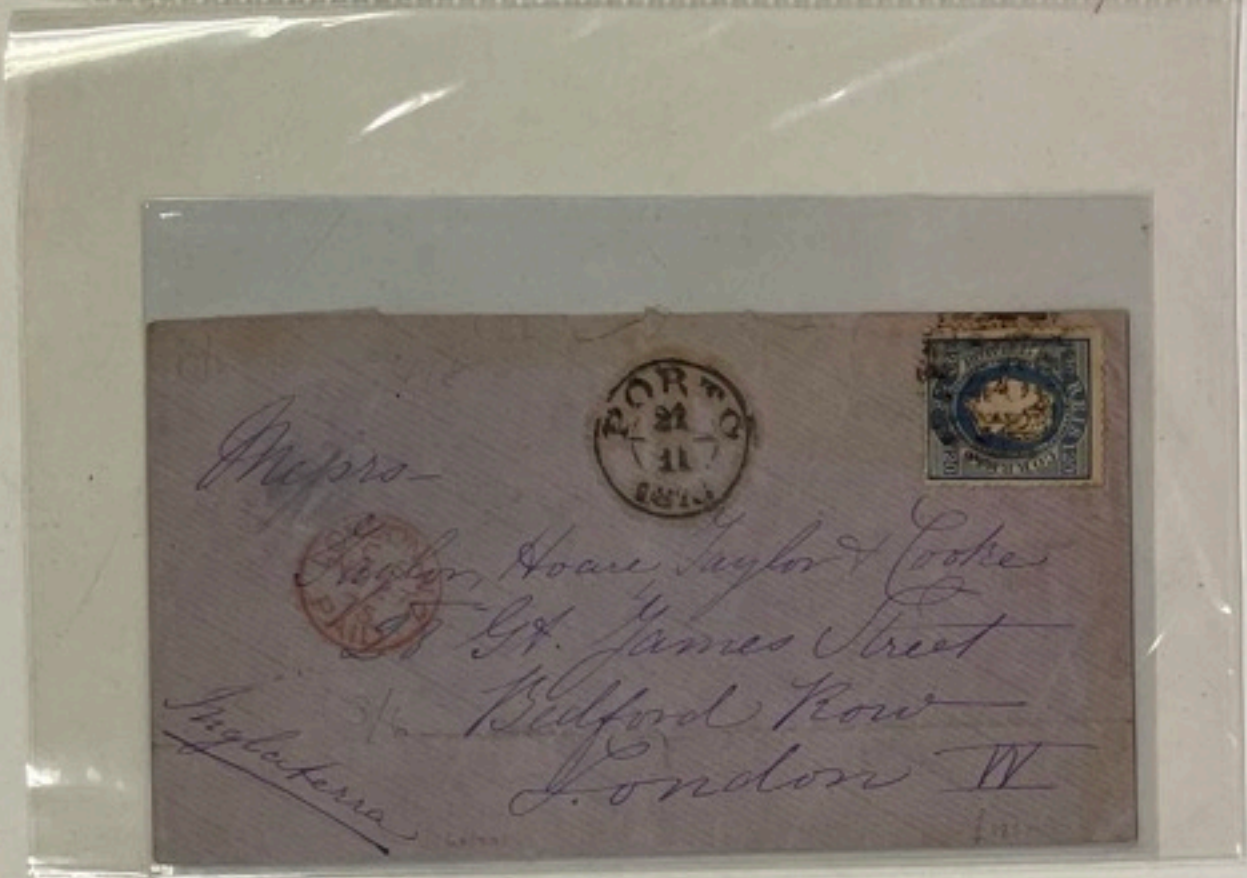 PORTO
21
11
120 REIS 120
Messrs
Taylor, Hoare Taylor & Cooke
28 Gt. James Street
Bedford Row
London W
Inglaterra
PAID